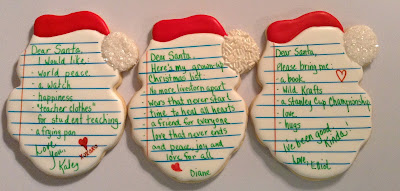 Dear Santa,
I would like:
· world peace
· a watch
· happiness
· "teacher clothes"
for student teaching
· a frying pan
Love
you,
Kaley
Dear Santa,
Here's my grownup
Christmas list:
No more lives torn apart
wars that never start
time to heal all hearts
a friend for everyone
love that never ends
and peace, joy and
love for all
Diane
Dear Santa,
Please bring me:
· a book
· Wild, Krafts
· a Stanley Cup Championship
· love
· hugs
I've been good!
Kinda!
Love,